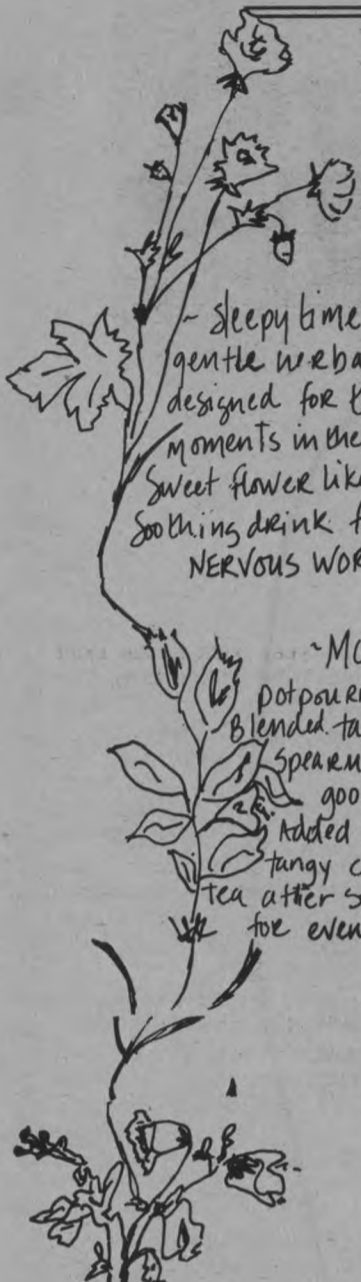 ~ Sleepytime
gentle herba
designed for t
moments in the
Sweet flower like
Soothing drink f
NERVOUS WOR
~MO
potpour
Blended ta
Spearm
goo
Added
tangy c
tea after s
for even